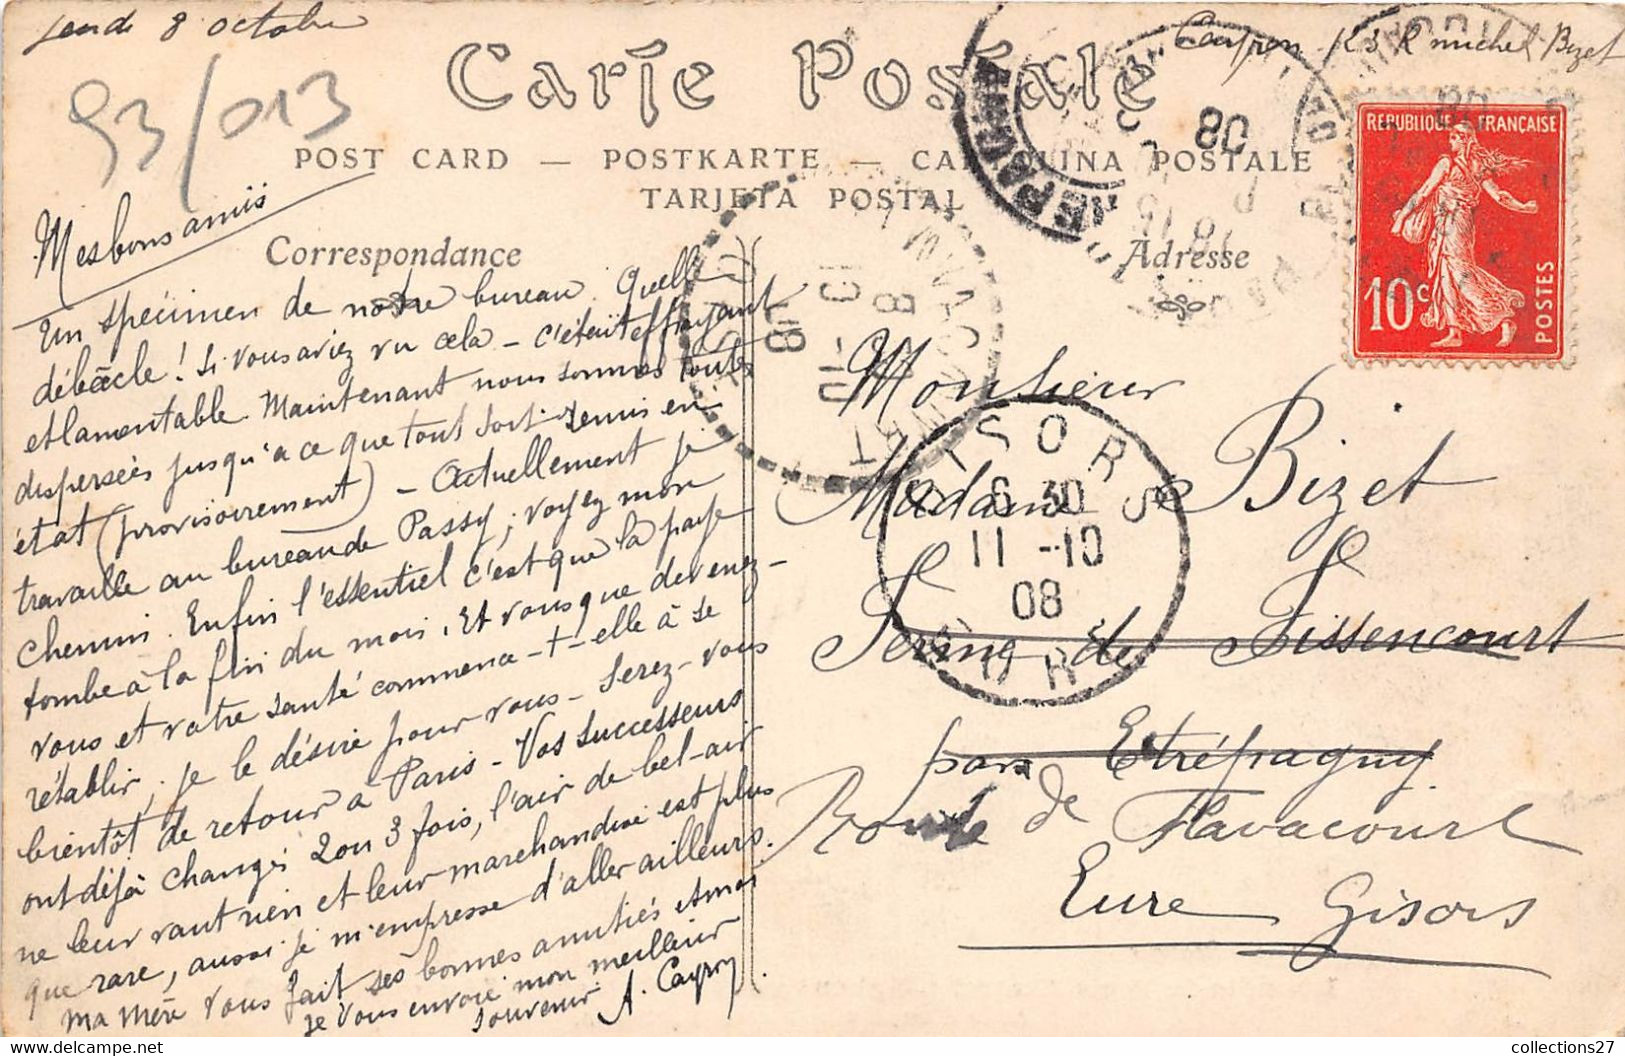 Jeudi 8 octobre
Cayron 123 R michel-Bizet
93/013
Carte Postale
POST CARD — POSTKARTE — CARTOLINA POSTALE
TARJETA POSTAL
Correspondance
Adresse
REPUBLIQUE FRANÇAISE
10c
POSTES
Mes bons amis
Un spécimen de notre bureau. Quelle
débâcle! Si vous aviez vu cela - c'était effrayant
et lamentable. Maintenant nous sommes toutes
dispersées jusqu'à ce que tout soit remis en
état (provisoirement) - Actuellement je
travaille au bureau de Passy; voyez mon
chemin. Enfin l'essentiel c'est que la paye
tombe à la fin du mois. Et vous que devenez-
vous et votre santé commence-t-elle à se
rétablir, je le désire pour vous - Serez-vous
bientôt de retour à Paris - Vos successeurs
ont déjà changé 2 ou 3 fois, l'air de bel-air
ne leur vaut rien et leur marchandise est plus
que rare, aussi je m'empresse d'aller ailleurs.
Ma Mère vous fait ses bonnes amitiés et moi
je vous envoie mon meilleur
souvenir. A. Cayron
Monsieur
Madame Bizet
Ferme de Fissencourt
par Etrépagny
Route de Flavacourt
Eure Gisors
GISORS
6 30
11 -10
08
EURE
collections27